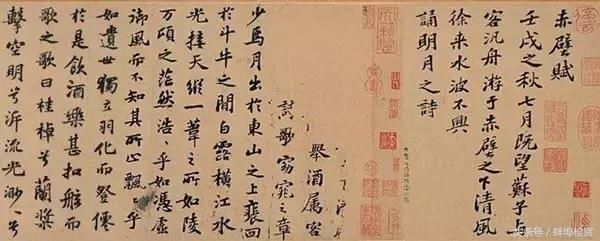 赤壁賦
壬戌之秋七月既望蘇子与
客汎舟游于赤壁之下清風
徐来水波不興
誦明月之詩
舉酒属客
歌窈窕之章
少焉月出於東山之上裴回
於斗牛之間白露橫江水
光接天縱一葦之所如陵
万頃之茫然浩〻乎如憑虛
御風而不知其所止飄〻乎
如遺世獨立羽化而登僊
於是飲酒樂甚扣舷而
歌之歌曰桂棹兮蘭槳
擊空明兮泝流光渺〻兮
头条号/蚌埠检察